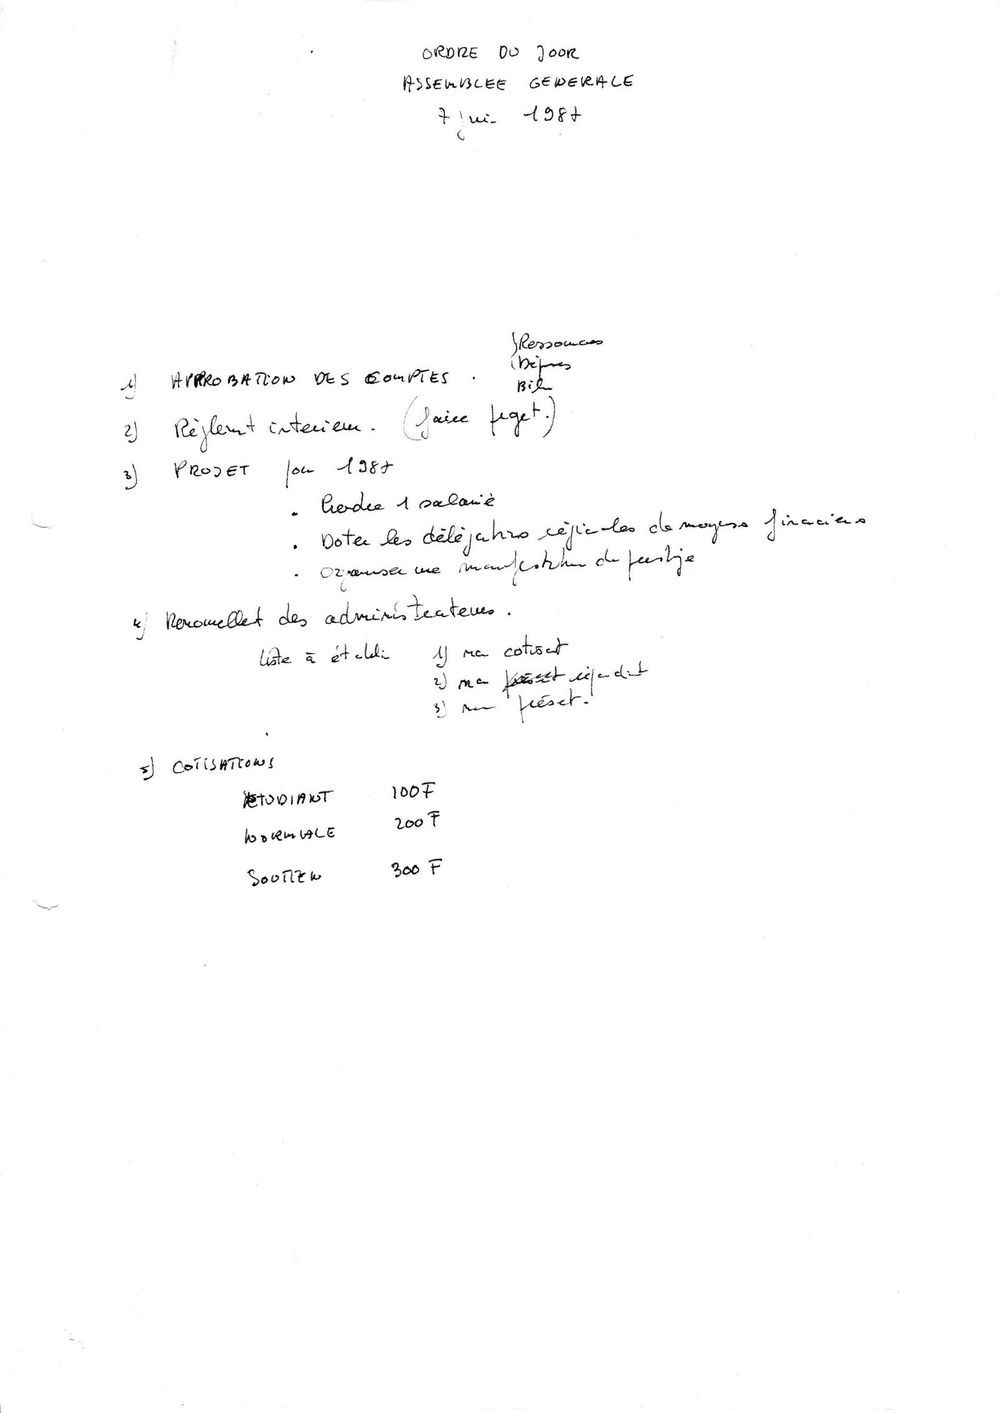 ORDRE DU JOUR
ASSEMBLEE GENERALE
7 juin 1987
Ressources
Dépnses
Bil
1) APPROBATION DES COMPTES .
2) Règlemt interieur. (faire projet.)
3) PROJET pour 1987
. Prendre 1 salarié
. Doter les délégations régionales de moyens financiers
. Organiser une manifestation de prestige
4) Renouvellet des administrateurs.
liste à établir 1) cotisat
2)
3) présent.
5) COTISATIONS
ETUDIANT 100F
NORMALE 200F
SOUTIEN 300F